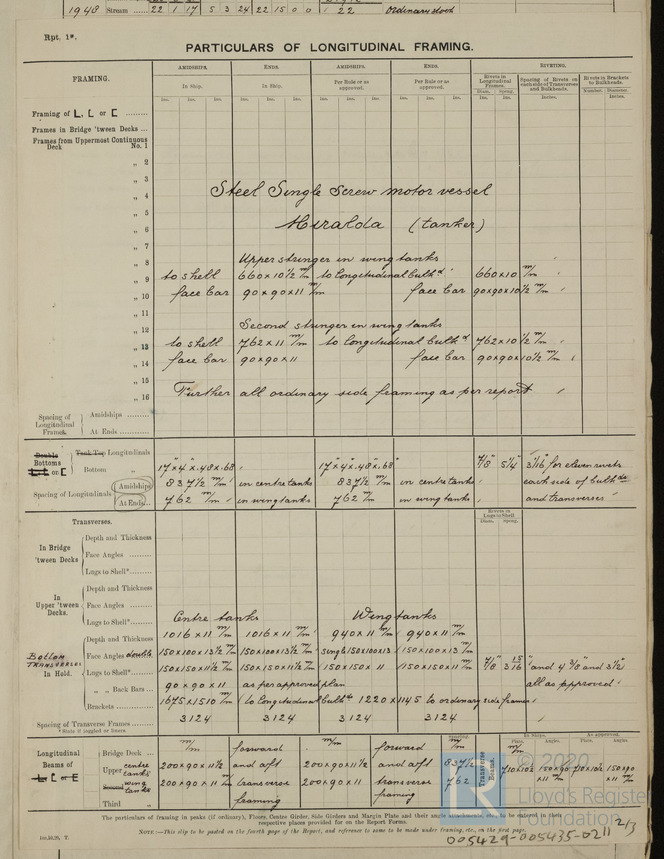 1948 Stream ...... 22 1 17 5 3 24 22 15 0 0 1 22 Ordinary stock
Rpt. 1*.
PARTICULARS OF LONGITUDINAL FRAMING.
FRAMING. AMIDSHIPS. ENDS. AMIDSHIPS. ENDS. RIVETING.
In Ship. In Ship. Per Rule or as approved. Per Rule or as approved. Rivets in Longitudinal Frames. Spacing of Rivets on each side of Transverses and Bulkheads. Rivets in Brackets to Bulkheads.
Ins. Ins. Ins. Ins. Ins. Ins. Ins. Ins. Ins. Ins. Ins. Ins. Diam. Spcng. Inches. Number. Diameter.
Ins. Ins. Inches.
Framing of L, L or [ .........
Frames in Bridge 'tween Decks ...
Frames from Uppermost Continuous Deck No. 1
„ 2
„ 3
„ 4 Steel Single Screw motor vessel
„ 5
„ 6 Miralda (tanker)
„ 7
„ 8 Upper stringer in wing tanks
„ 9 to shell 660 x 10½ m/m to longitudinal bulkd. 660 x 10 m/m
„ 10 face bar 90 x 90 x 11 m/m face bar 90 x 90 x 10½ m/m
„ 11
„ 12 Second stringer in wing tanks
„ 13 to shell 762 x 11 m/m to longitudinal bulkd 762 x 10½ m/m
„ 14 face bar 90 x 90 x 11 face bar 90 x 90 x 10½ m/m
„ 15
„ 16 Further all ordinary side framing as per report
Spacing of Longitudinal Frames. Amidships .........
At Ends .........
Double Bottoms L, L or [ Tank Top Longitudinals
Bottom „ 17" x 4" x .48 x .68 17" x 4" x .48 x .68" 7/8 5¼" 3 9/16" for eleven rivets
Spacing of Longitudinals Amidships 837½ m/m in centre tanks 837½ m/m in centre tanks each side of bulkds
At Ends... 762 m/m in wing tanks 762 m/m in wing tanks and transverses
Transverses.
Rivets in Lugs to Shell
Diam. Spcng.
In Bridge 'tween Decks Depth and Thickness
Face Angles .........
Lugs to Shell* .........
In Upper 'tween Decks. Depth and Thickness
Face Angles .........
Lugs to Shell* ......... Centre tanks Wing tanks
Bottom TRANSVERSES In Hold. Depth and Thickness 1016 x 11 m/m 1016 x 11 m/m 940 x 11 m/m 940 x 11 m/m
Face Angles double 150 x 100 x 13½ m/m 150 x 100 x 13½ m/m single 150 x 100 x 13 150 x 100 x 13 m/m
Lugs to Shell* ... 150 x 150 x 11½ m/m 150 x 150 x 11½ m/m 150 x 150 x 11 150 x 150 x 11 m/m 7/8" "and 4 3/8" and 3½"
„ „ Back Bars ... 90 x 90 x 11 as per approved plan all as approved
Brackets ......... 1675 x 1510 m/m (to longitudinal bulkds 1220 x 1145 to ordinary side frames
Spacing of Transverse Frames ... 3124 3124 3124 3124
* State if joggled or liners.
Longitudinal Beams of L, L or [ Bridge Deck ... m/m forward m/m forward
Upper centre tanks 200 x 90 x 11½ and aft 200 x 90 x 11½ and aft 837½
Second wing tanks 200 x 90 x 11 m/m transverse 200 x 90 x 11 transverse 762
Third „ framing framing
Transverse Beams.
In Ship. As approved.
Plate. Angles Plate. Angles
© 2020
Lloyd's Register
Foundation
The particulars of framing in peaks (if ordinary), Floors, Centre Girder, Side Girders and Margin Plate and their angle attachments, etc., to be entered in their
respective places provided for on the Report Forms.
NOTE:—This slip to be pasted on the fourth page of the Report, and reference to some to be made under framing, etc., on the first page.
005429-005435-0211 2/3